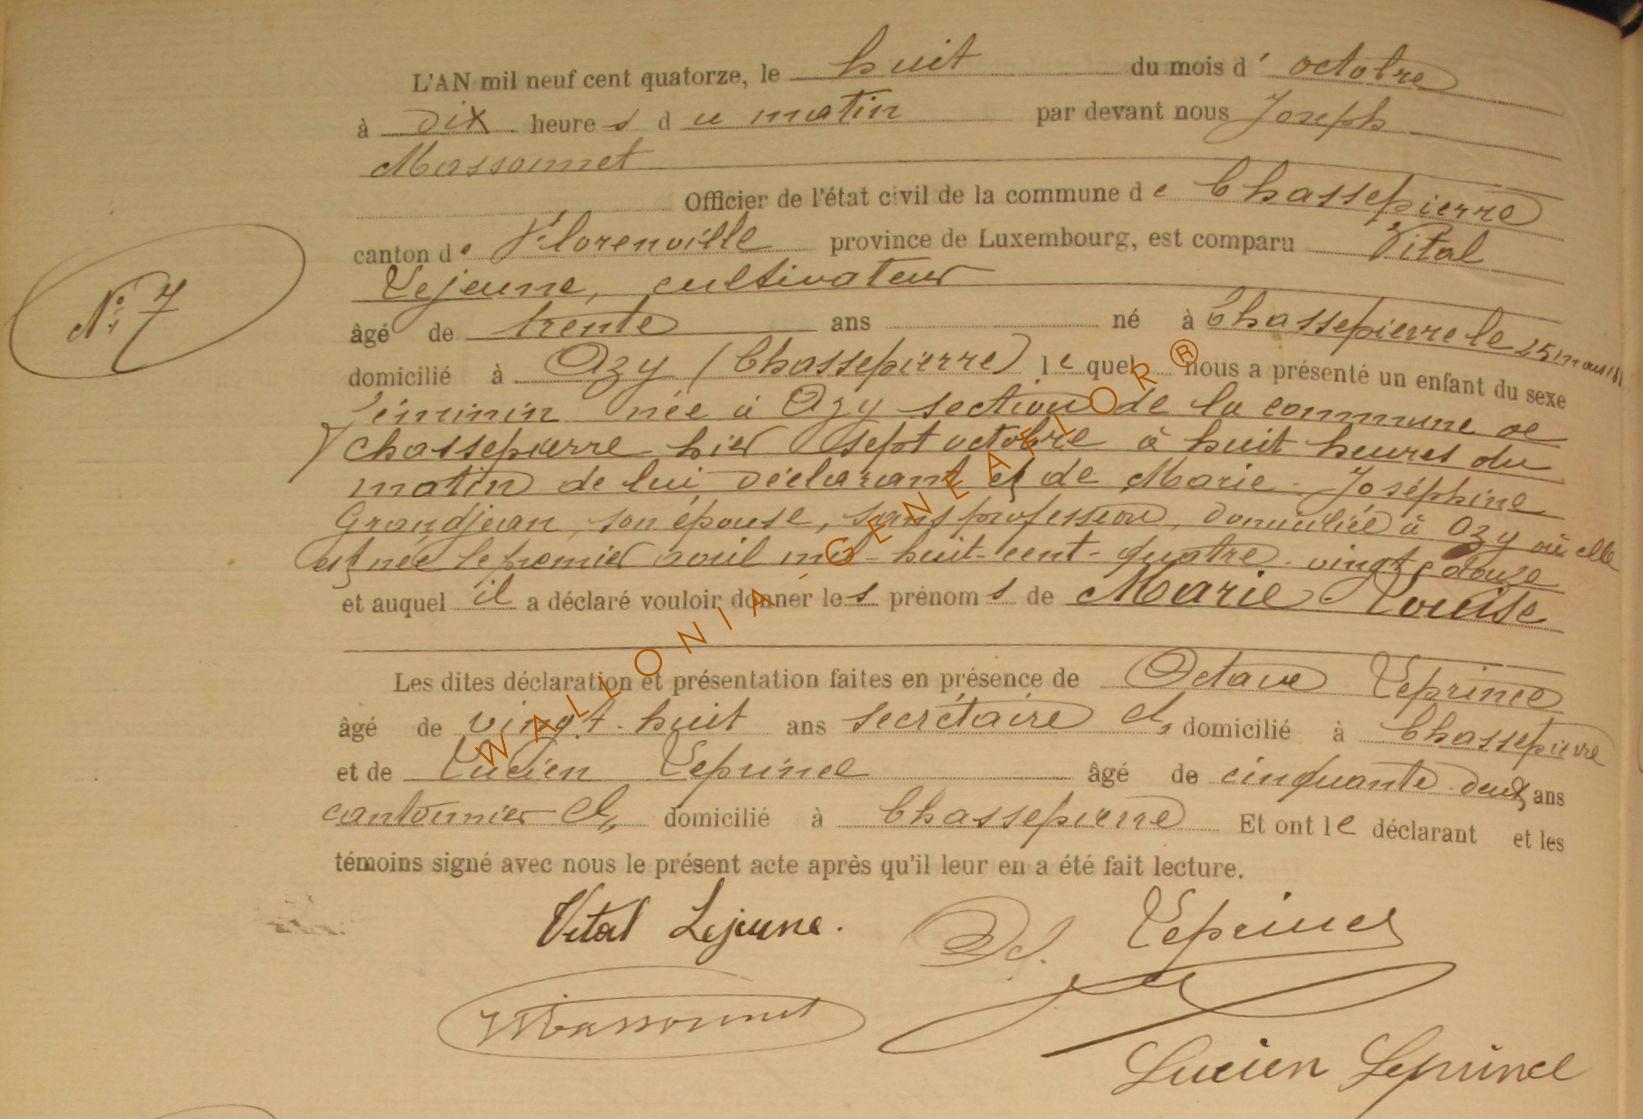 L'AN mil neuf cent quatorze, le huit du mois d' octobre
à dix heure s d u matin par devant nous Joseph
Massonnet
Officier de l'état civil de la commune d e Chassepierre
canton de Florenville province de Luxembourg, est comparu Vital
Lejeune, cultivateur
N° 7
âgé de trente ans né à Chassepierre le 25 mars
domicilié à Azy (Chassepierre) le quel nous a présenté un enfant du sexe
féminin née à Azy section de la commune de
Chassepierre hier sept octobre à huit heures du
matin de lui déclarant et de Marie-Joséphine
Grandjean, son épouse, sans profession, domiciliée à Azy où elle
est née le premier avril mil-huit-cent-quatre-vingt-douze
et auquel il a déclaré vouloir donner les prénoms de Marie Louise
Les dites déclaration et présentation faites en présence de Octave Leprince
âgé de vingt-huit ans secrétaire et domicilié à Chassepierre
et de Lucien Leprince âgé de cinquante-deux ans
cantonnier et domicilié à Chassepierre Et ont le déclarant et les
témoins signé avec nous le présent acte après qu'il leur en a été fait lecture.
Vital Lejeune. Leprince
Massonnet
Lucien Leprince
WALLONIA-GENEAFLOR®